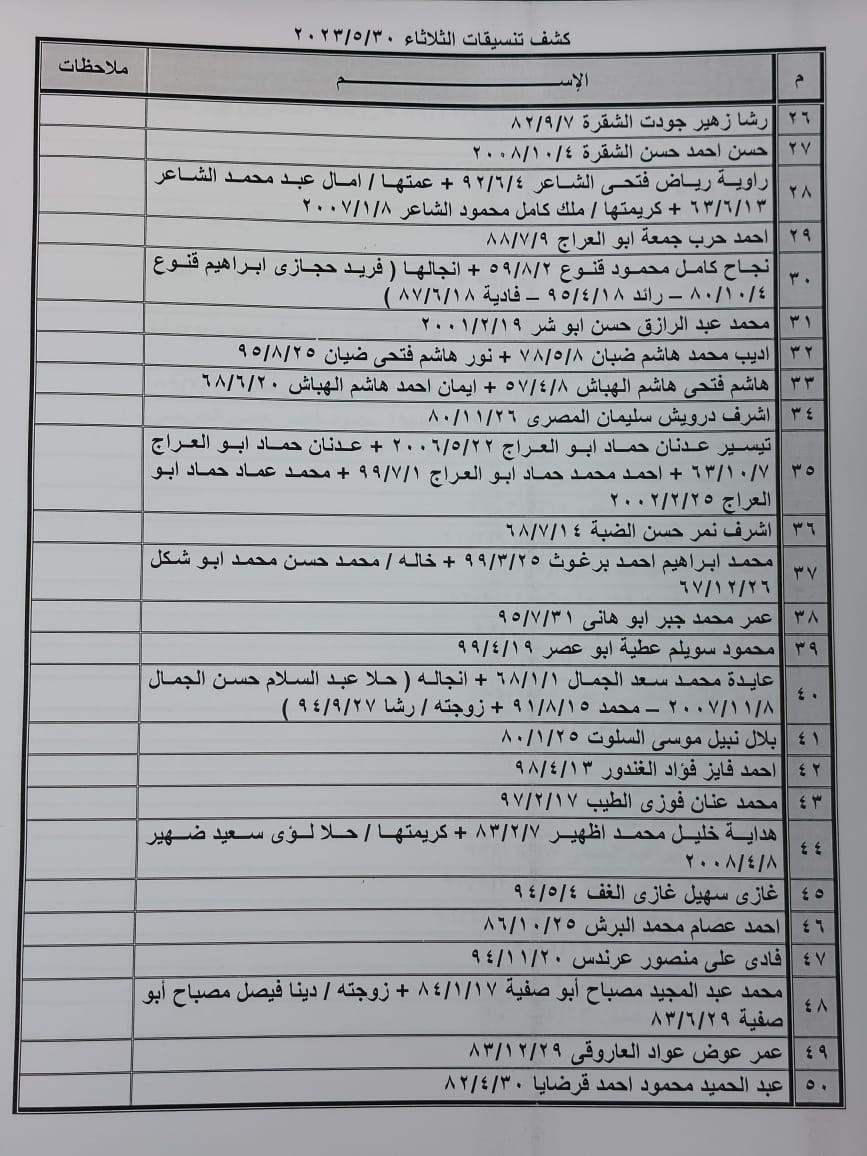 كشف تنسيقات الثلاثاء ٢٠٢٣/٥/٣٠
م الإســـــم ملاحظات
٢٦ رشا زهير جودت الشقرة ٨٢/٩/٧
٢٧ حسن احمد حسن الشقرة ٢٠٠٨/١٠/٤
٢٨ راوية رياض فتحى الشاعر ٩٢/٦/٤ + عمتها / امال عبد محمد الشاعر
٦٣/٦/١٣ + كريمتها / ملك كامل محمود الشاعر ٢٠٠٧/١/٨
٢٩ احمد حرب جمعة ابو العراج ٨٨/٧/٩
٣٠ نجاح كامل محمود قنوع ٥٩/٨/٢ + انجالها ( فريد حجازى ابراهيم قنوع
٨٠/١٠/٤ – رائد ٩٥/٤/١٨ – فادية ٨٧/٦/١٨ )
٣١ محمد عبد الرازق حسن ابو شر ٢٠٠١/٢/١٩
٣٢ اديب محمد هاشم ضبان ٧٨/٥/٨ + نور هاشم فتحى ضيان ٩٥/٨/٢٥
٣٣ هاشم فتحى هاشم الهباش ٥٧/٤/٨ + ايمان احمد هاشم الهباش ٦٨/٦/٢٠
٣٤ اشرف درويش سليمان المصرى ٨٠/١١/٢٦
٣٥ تيسير عدنان حماد ابو العراج ٢٠٠٦/٥/٢٢ + عدنان حماد ابو العراج
٦٣/١٠/٧ + احمد محمد حماد ابو العراج ٩٩/٧/١ + محمد عماد حماد ابو
العراج ٢٠٠٢/٢/٢٥
٣٦ اشرف نمر حسن الضبة ٦٨/٧/١٤
٣٧ محمد ابراهيم احمد برغوث ٩٩/٣/٢٥ + خاله / محمد حسن محمد ابو شكل
٦٧/١٢/٢٦
٣٨ عمر محمد جبر ابو هانى ٩٥/٧/٣١
٣٩ محمود سويلم عطية ابو عصر ٩٩/٤/١٩
٤٠ عايدة محمد سعد الجمال ٦٨/١/١ + انجاله ( حلا عبد السلام حسن الجمال
٢٠٠٧/١١/٨ – محمد ٩١/٨/١٥ + زوجته / رشا ٩٤/٩/٢٧ )
٤١ بلال نبيل موسى السلوت ٨٠/١/٢٥
٤٢ احمد فايز فؤاد الغندور ٩٨/٤/١٣
٤٣ محمد عنان فوزى الطيب ٩٧/٢/١٧
٤٤ هداية خليل محمد اظهير ٨٣/٢/٧ + كريمتها / حلا لؤى سعيد ضهير
٢٠٠٨/٤/٨
٤٥ غازى سهيل غازى الغف ٩٤/٥/٤
٤٦ احمد عصام محمد البرش ٨٦/١٠/٢٥
٤٧ فادى على منصور عرندس ٩٤/١١/٢٠
٤٨ محمد عبد المجيد مصباح أبو صفية ٨٤/١/١٧ + زوجته / دينا فيصل مصباح أبو
صفية ٨٣/٦/٢٩
٤٩ عمر عوض عواد العاروقى ٨٣/١٢/٢٩
٥٠ عبد الحميد محمود احمد قرضايا ٨٢/٤/٣٠